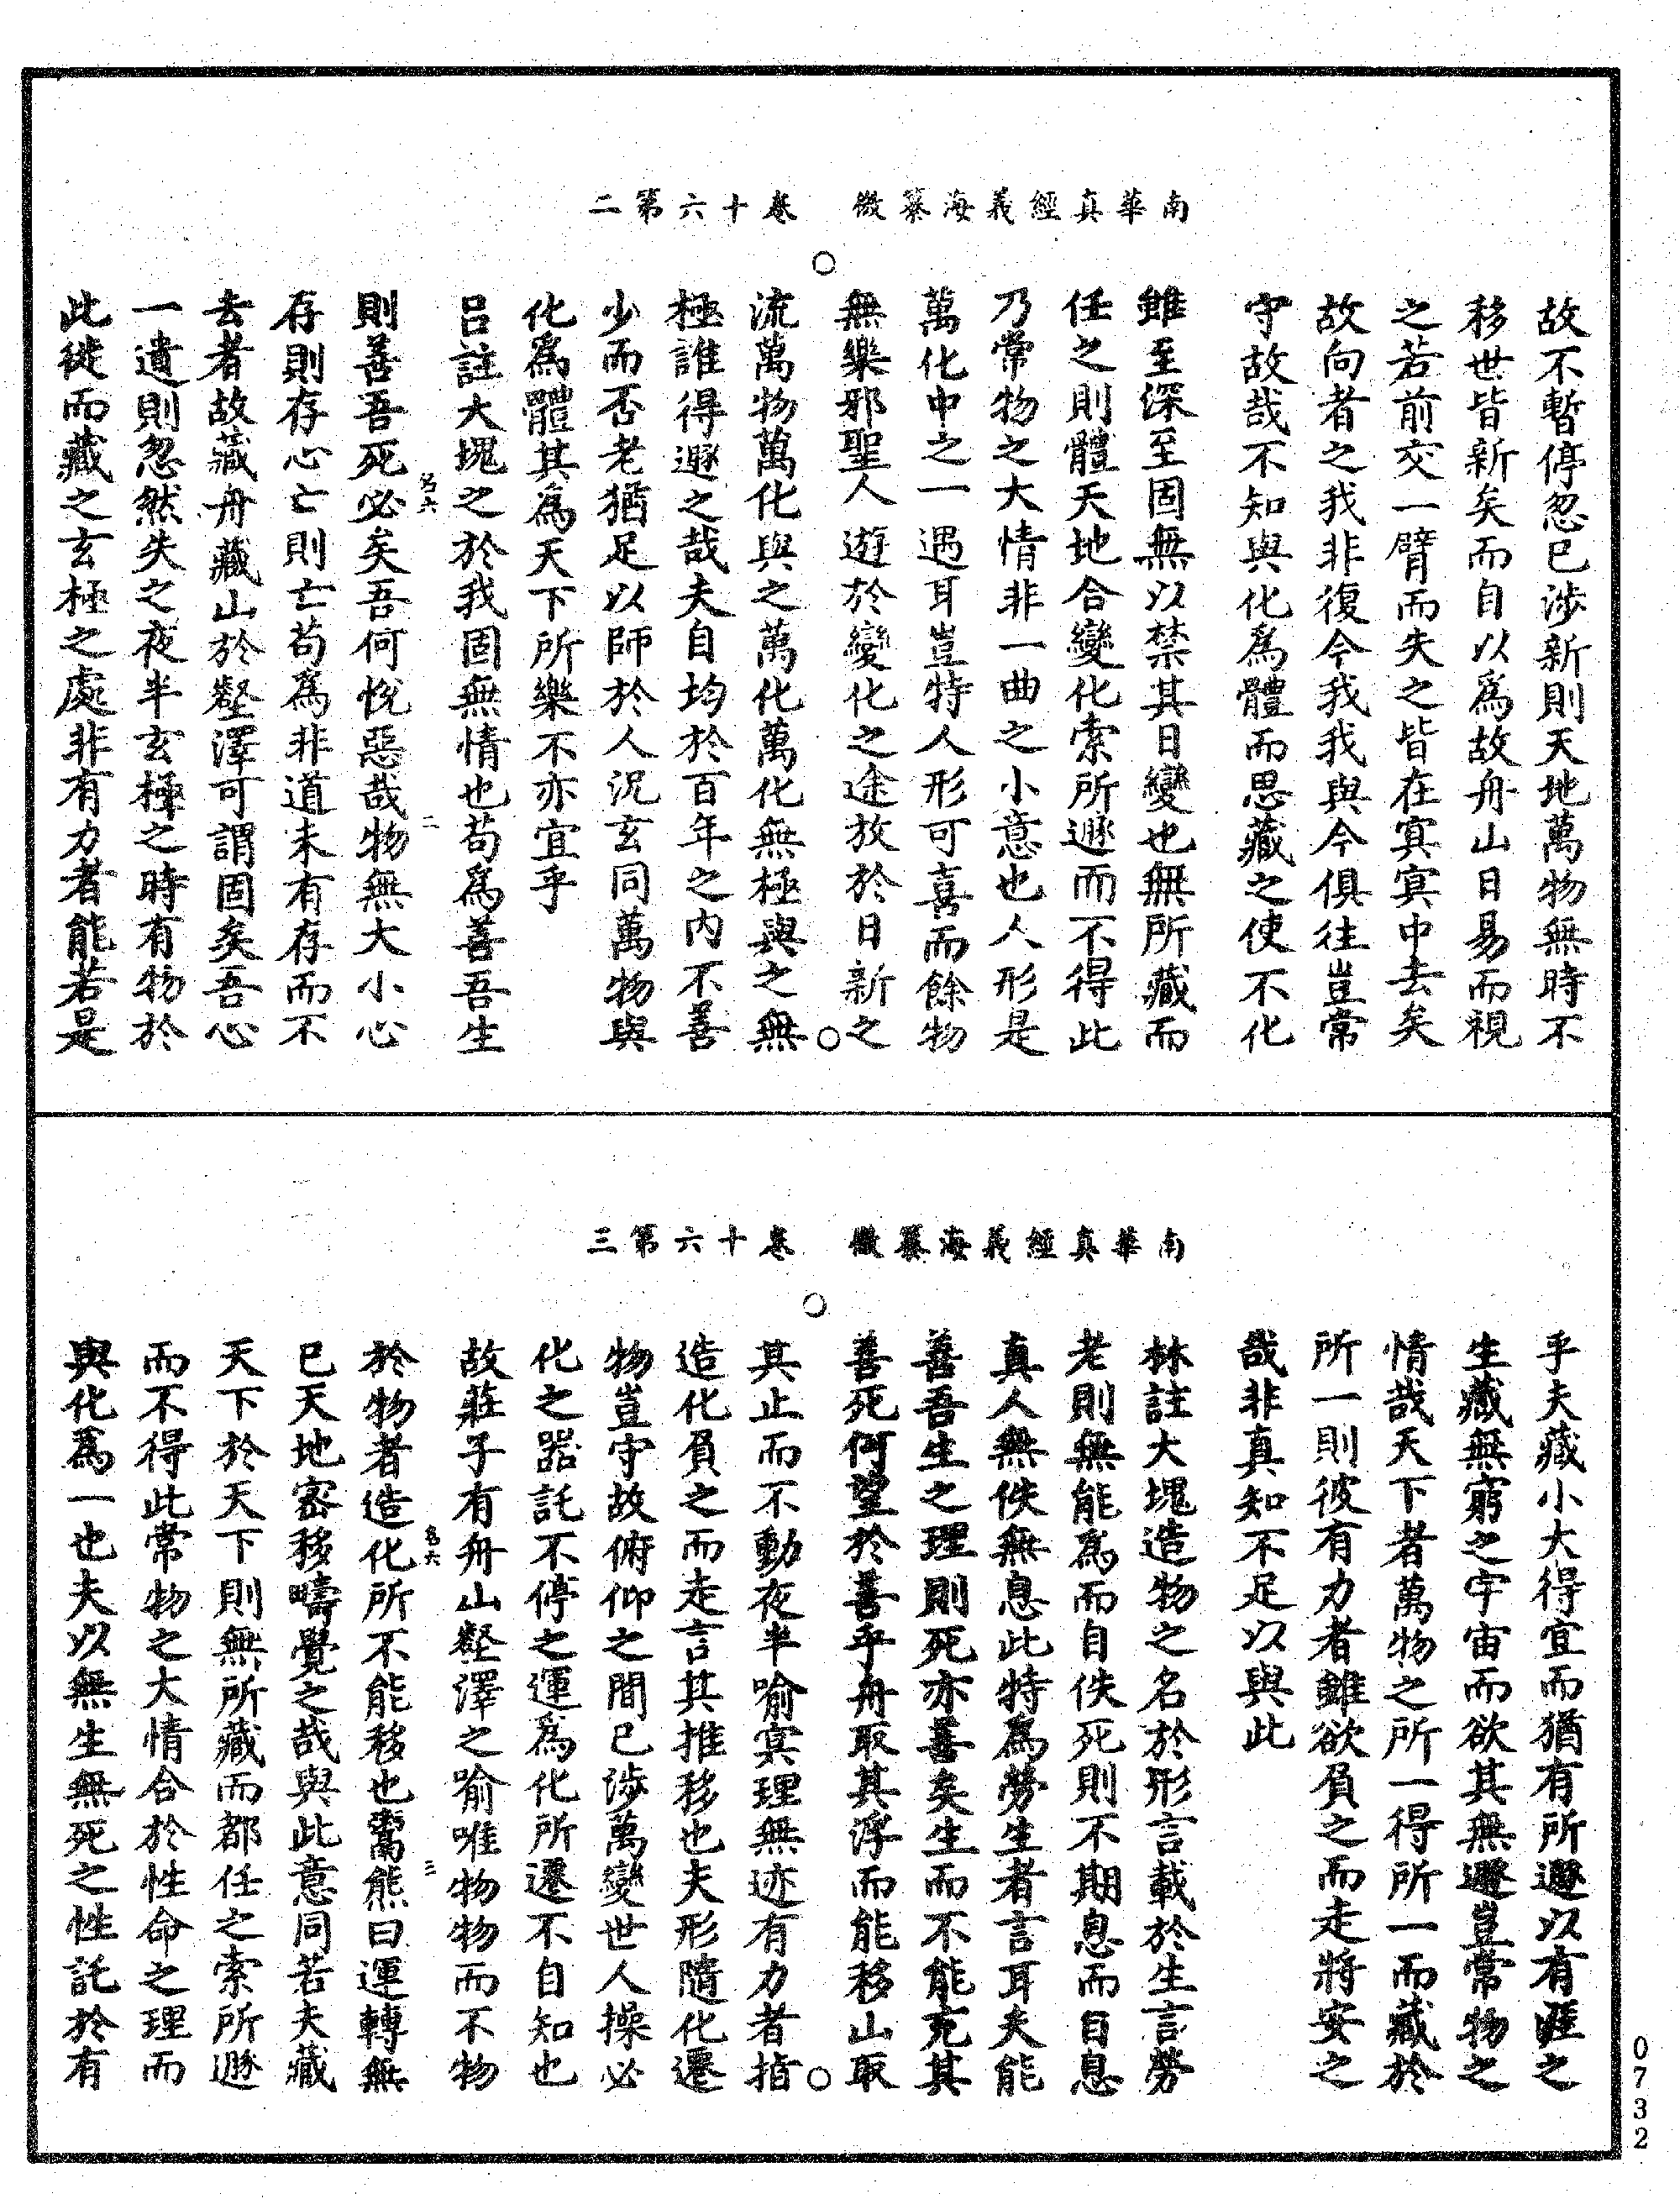 南華真經義海纂微　卷十六第二
故不暫停忽已涉新則天地萬物無時不
移世皆新矣而自以為故舟山日易而視
之若前交一臂而失之皆在冥冥中去矣
故向者之我非復今我我與今俱往豈常
守故哉不知與化為體而思藏之使不化
雖至深至固無以禁其日變也無所藏而
任之則體天地合變化索所遯而不得此
乃常物之大情非一曲之小意也人形是
萬化中之一遇耳豈特人形可喜而餘物
無樂邪聖人遊於變化之途放於日新之
流萬物萬化與之萬化萬化無極與之無
極誰得遯之哉夫自均於百年之內不善
少而否老猶足以師於人況玄同萬物與
化為體其為天下所樂不亦宜乎
呂註大塊之於我固無情也苟為善吾生
名六　二
則善吾死必矣吾何悅惡哉物無大小心
存則存心亡則亡苟為非道未有存而不
去者故藏舟藏山於壑澤可謂固矣吾心
一遺則忽然失之夜半玄極之時有物於
此徙而藏之玄極之處非有力者能若是
南華真經義海纂微　卷十六第三
乎夫藏小大得宜而猶有所遯以有涯之
生藏無窮之宇宙而欲其無遯豈常物之
情哉天下者萬物之所一得所一而藏於
所一則彼有力者雖欲負之而走將安之
哉非真知不足以與此
林註大塊造物之名於形言載於生言勞
老則無能為而自佚死則不期息而自息
真人無佚無息此特為勞生者言耳夫能
善吾生之理則死亦善矣生而不能充其
善死何望於善乎舟取其浮而能移山取
其止而不動夜半喻冥理無迹有力者指
造化負之而走言其推移也夫形隨化遷
物豈守故俯仰之間已涉萬變世人操必
化之器託不停之運為化所遷不自知也
故莊子有舟山壑澤之喻唯物物而不物
名六　三
於物者造化所不能移也鬻熊曰運轉無
已天地密移疇覺之哉與此意同若夫藏
天下於天下則無所藏而都任之索所遯
而不得此常物之大情合於性命之理而
與化為一也夫以無生無死之性託於有
0732